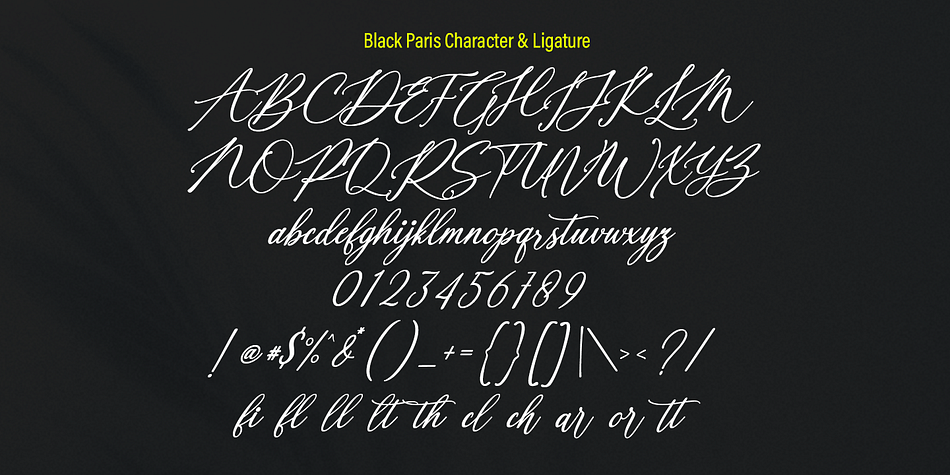 Black Paris Character & Ligature
ABCDEFGHIJKLM
NOPQRSTUVWXYZ
abcdefghijklmnopqrstuvwxyz
0123456789
! @ # $ % ^ & * ( ) _ + = { } [ ] | \ > < ? /
fi fl ll lt th cl ch ar or tt